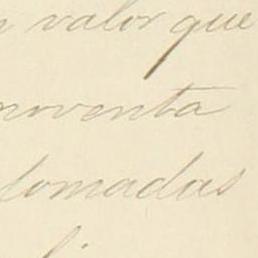 n valor que
noventa
tomadas